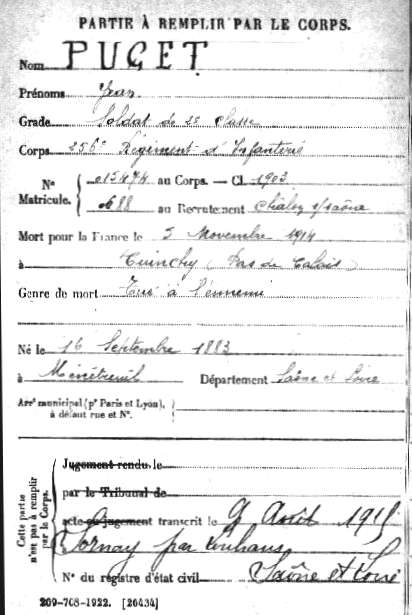 PARTIE À REMPLIR PAR LE CORPS.
Nom PUGET
Prénoms Jean
Grade Soldat de 2e Classe
Corps 256e Régiment d'Infanterie
N° 013474 au Corps. — Cl. 1903
Matricule. 0688 au Recrutement Châlon s/Saône
Mort pour la France le 5 Novembre 1914
à Cuinchy (Pas de Calais)
Genre de mort Tué à l'ennemi
Né le 16 Septembre 1883
à Ménétreuil Département Saône et Loire
Arrt municipal (pr Paris et Lyon),
à défaut rue et N°.
Cette partie
n'est pas à remplir
par le Corps.
Jugement rendu le
par le Tribunal de
acte ou jugement transcrit le 9 Août 1915
Tornay par Louhans
N° du registre d'état civil Saône et Loire
209-708-1922. [26434]